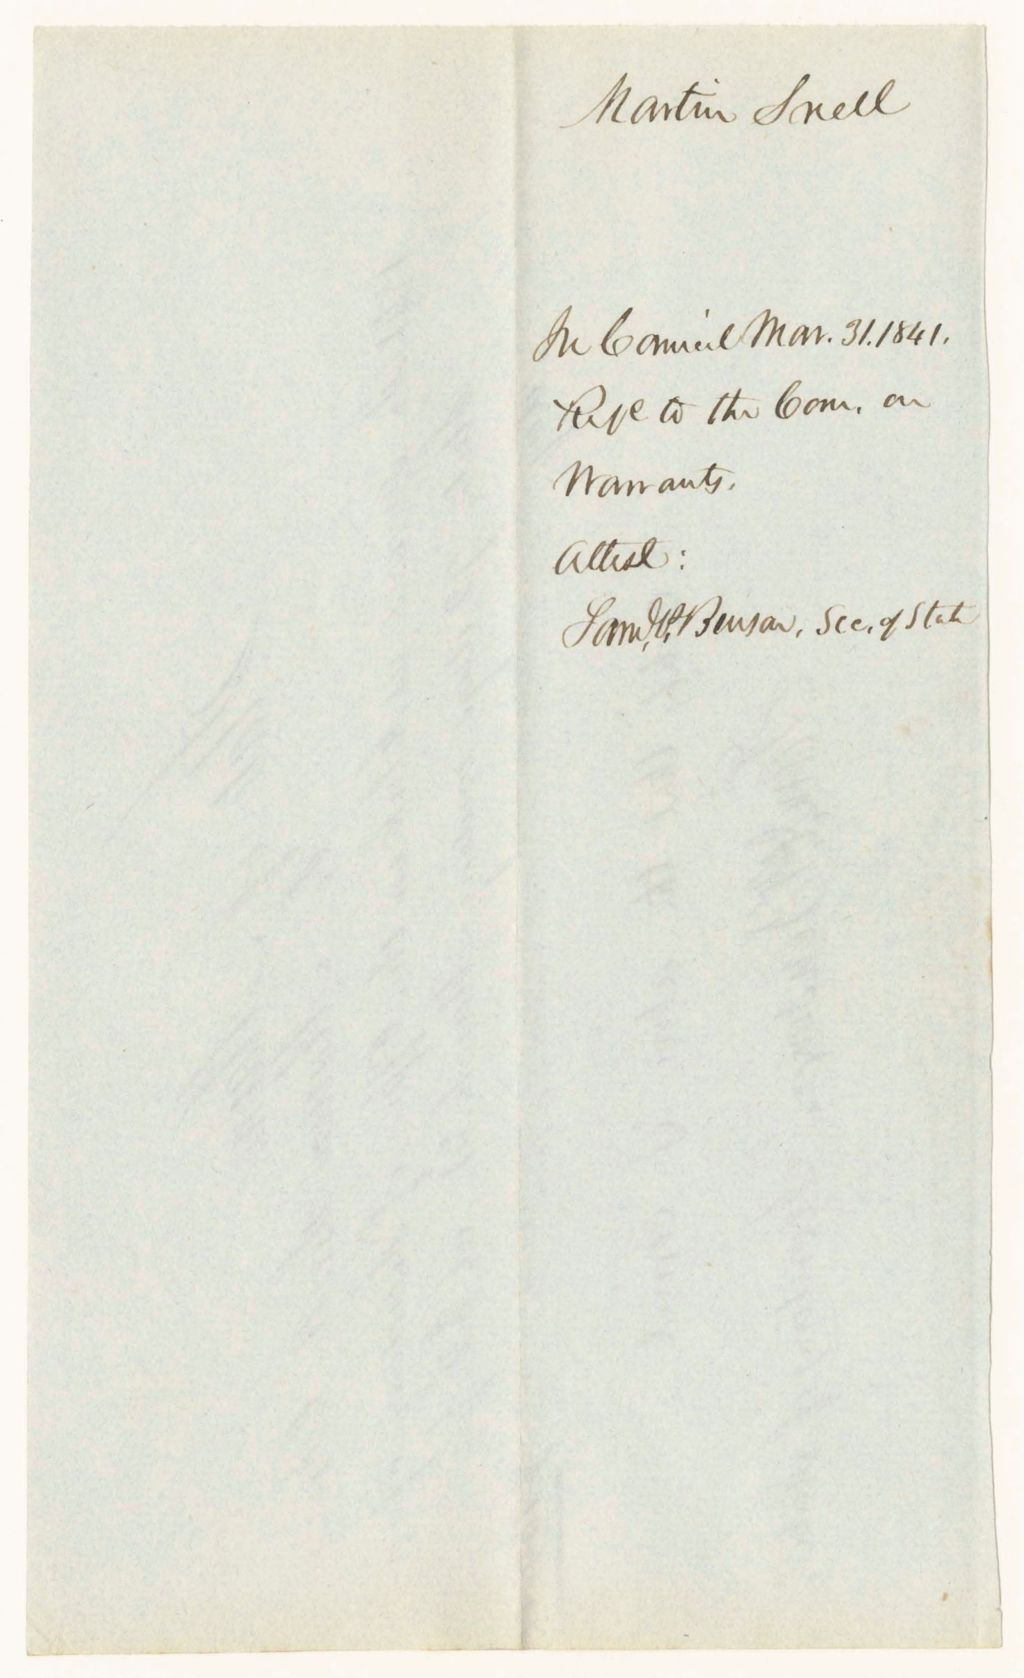 Martin Snell
In Council Mar. 31. 1841.
to the Com. on
Warrants.
Attest:
Saml. P. Benson, Sec. of State